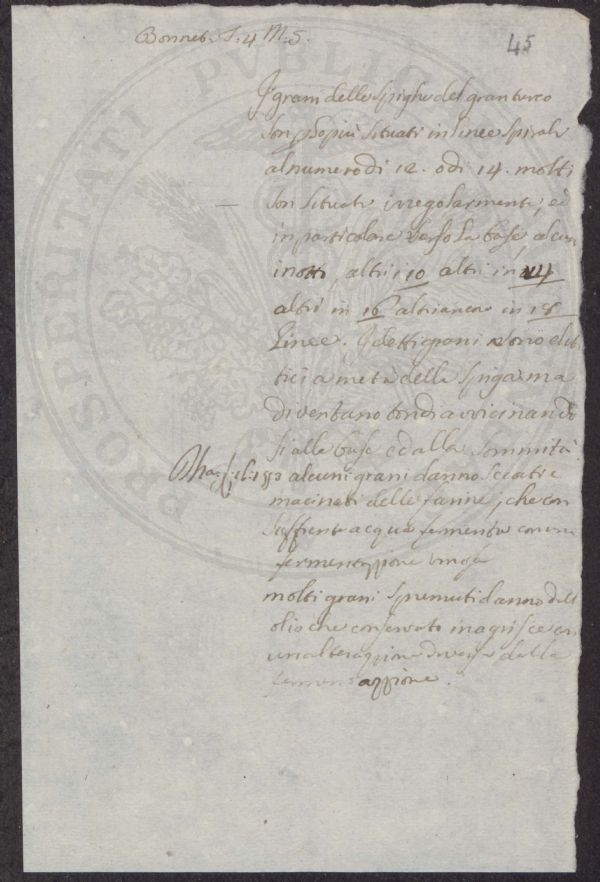 Bonnet. T. 4 M. 5.
45
I grani delle spighe del gran turco
son p lo più situati in linee spirali
al numero di 12. o di 14. molti
son situati irregolarmente, ed
in particolare verso la base, alcuni
in otto, altri in 10 altri in 14
altri in 16 altri ancora in 18
Linee. I detti grani sono elit
tici a metà della spiga ma
diventano tondi avvicinando
si alla base ed alla sommità.
alcuni grani danno seccati e
macinati delle farine, che con
sufficiente acqua fermenta con una
fermentazione vinosa
molti grani spremuti danno dell
olio che conservato inagrisce con
un alterazione diversa dalla
fermentazione.
PROSPERITATI PUBLIC